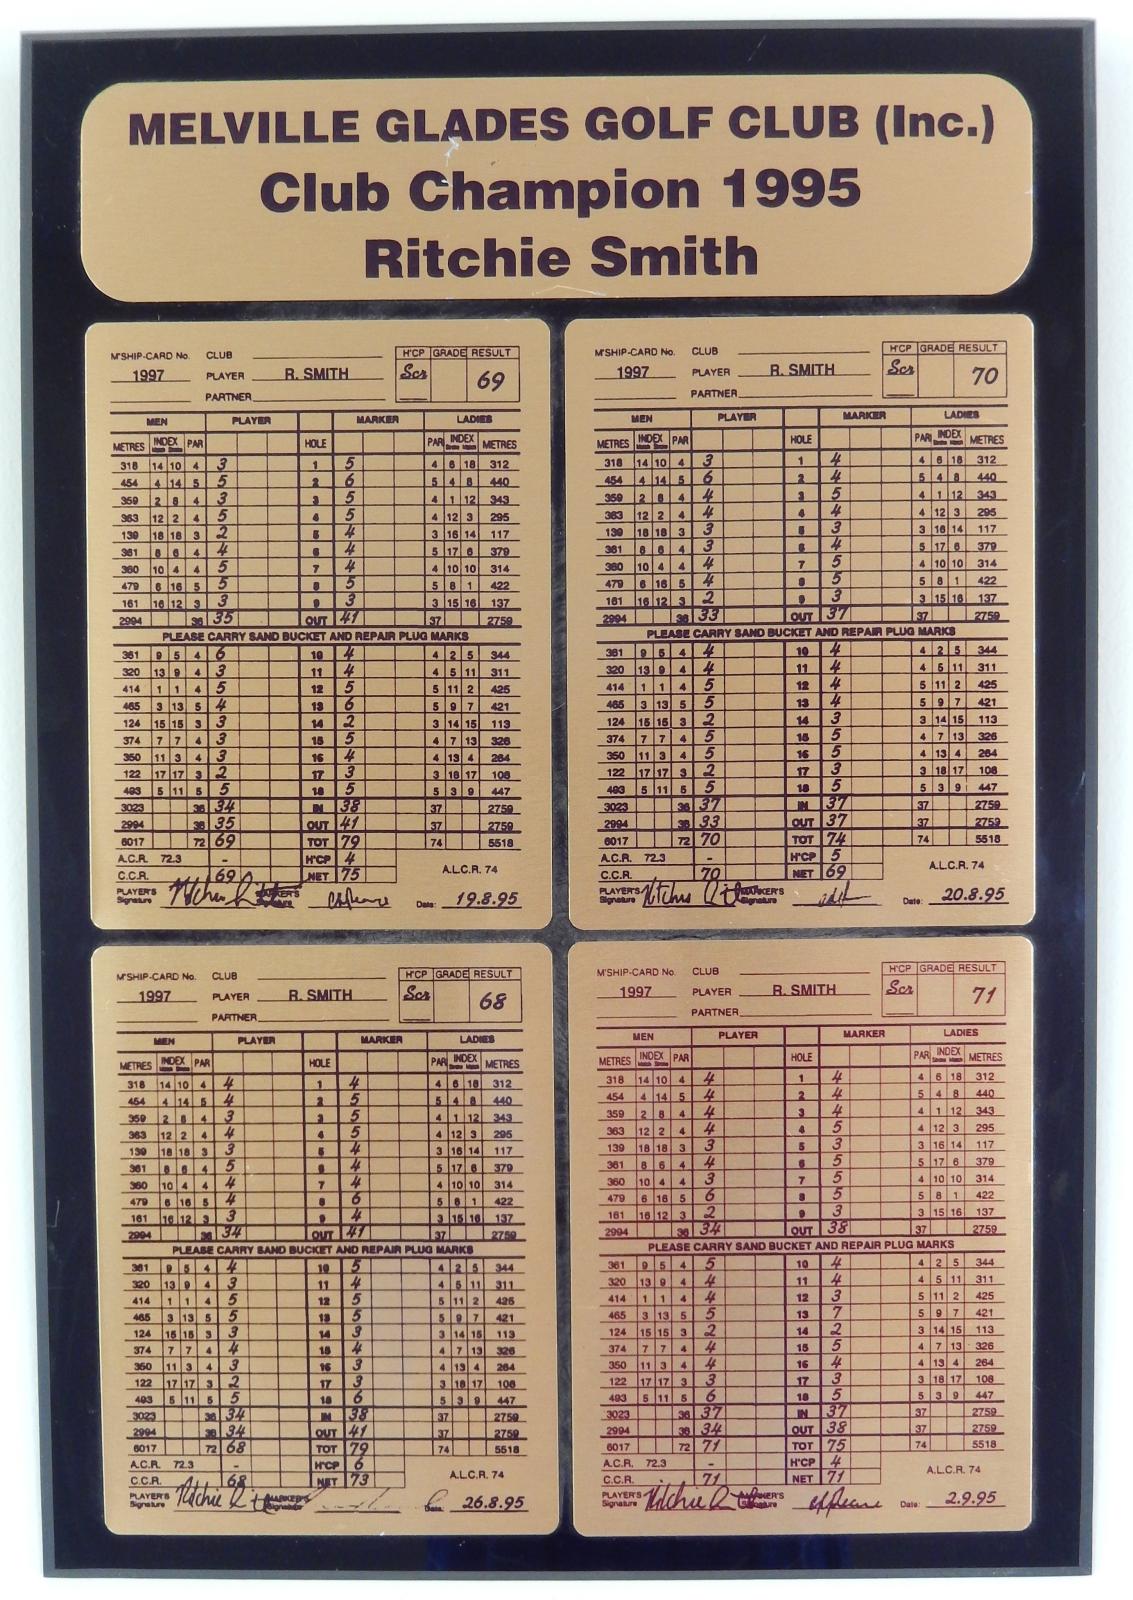 MELVILLE GLADES GOLF CLUB (Inc.)
Club Champion 1995
Ritchie Smith
M'SHIP-CARD No. CLUB H'CP GRADE RESULT
1997 PLAYER R. SMITH Scr 69
PARTNER
MEN PLAYER MARKER LADIES
METRES INDEX PAR HOLE PAR INDEX METRES
318 14 10 4 3 1 5 4 6 18 312
454 4 14 5 5 2 6 5 4 8 440
359 2 8 4 3 3 5 4 1 12 343
363 12 2 4 5 4 5 4 12 3 295
139 18 18 3 2 5 4 3 16 14 117
361 8 6 4 4 6 4 5 17 6 379
360 10 4 4 5 7 4 4 10 10 314
479 6 16 5 5 8 5 5 8 1 422
161 16 12 3 3 9 3 3 15 16 137
2994 36 35 OUT 41 37 2759
PLEASE CARRY SAND BUCKET AND REPAIR PLUG MARKS
361 9 5 4 6 10 4 4 2 5 344
320 13 9 4 3 11 4 4 5 11 311
414 1 1 4 5 12 5 5 11 2 425
465 3 13 5 4 13 6 5 9 7 421
124 15 15 3 3 14 2 3 14 15 113
374 7 7 4 3 15 5 4 7 13 326
350 11 3 4 3 16 4 4 13 4 264
122 17 17 3 2 17 3 3 18 17 108
493 5 11 5 5 18 5 5 3 9 447
3023 36 34 IN 38 37 2759
2994 36 35 OUT 41 37 2759
6017 72 69 TOT 79 74 5518
A.C.R. 72.3 - H'CP 4 A.L.C.R. 74
C.C.R. 69 NET 75
PLAYER'S Signature MARKER'S Signature Date: 19.8.95
M'SHIP-CARD No. CLUB H'CP GRADE RESULT
1997 PLAYER R. SMITH Scr 70
PARTNER
MEN PLAYER MARKER LADIES
METRES INDEX PAR HOLE PAR INDEX METRES
318 14 10 4 3 1 4 4 6 18 312
454 4 14 5 6 2 4 5 4 8 440
359 2 8 4 4 3 5 4 1 12 343
363 12 2 4 4 4 4 4 12 3 295
139 18 18 3 3 5 3 3 16 14 117
361 8 6 4 3 6 4 5 17 6 379
360 10 4 4 4 7 5 4 10 10 314
479 6 16 5 4 8 5 5 8 1 422
161 16 12 3 2 9 3 3 15 16 137
2994 36 33 OUT 37 37 2759
PLEASE CARRY SAND BUCKET AND REPAIR PLUG MARKS
361 9 5 4 4 10 4 4 2 5 344
320 13 9 4 4 11 4 4 5 11 311
414 1 1 4 5 12 4 5 11 2 425
465 3 13 5 5 13 4 5 9 7 421
124 15 15 3 2 14 3 3 14 15 113
374 7 7 4 5 15 5 4 7 13 326
350 11 3 4 5 16 5 4 13 4 264
122 17 17 3 2 17 3 3 18 17 108
493 5 11 5 5 18 5 5 3 9 447
3023 36 37 IN 37 37 2759
2994 36 33 OUT 37 37 2759
6017 72 70 TOT 74 74 5518
A.C.R. 72.3 - H'CP 5 A.L.C.R. 74
C.C.R. 70 NET 69
PLAYER'S Signature MARKER'S Signature Date: 20.8.95
M'SHIP-CARD No. CLUB H'CP GRADE RESULT
1997 PLAYER R. SMITH Scr 68
PARTNER
MEN PLAYER MARKER LADIES
METRES INDEX PAR HOLE PAR INDEX METRES
318 14 10 4 4 1 4 4 6 18 312
454 4 14 5 4 2 5 5 4 8 440
359 2 8 4 3 3 5 4 1 12 343
363 12 2 4 4 4 5 4 12 3 295
139 18 18 3 3 5 4 3 16 14 117
361 8 6 4 5 6 4 5 17 6 379
360 10 4 4 4 7 4 4 10 10 314
479 6 16 5 4 8 6 5 8 1 422
161 16 12 3 3 9 4 3 15 16 137
2994 36 34 OUT 41 37 2759
PLEASE CARRY SAND BUCKET AND REPAIR PLUG MARKS
361 9 5 4 4 10 5 4 2 5 344
320 13 9 4 3 11 4 4 5 11 311
414 1 1 4 5 12 5 5 11 2 425
465 3 13 5 5 13 5 5 9 7 421
124 15 15 3 3 14 3 3 14 15 113
374 7 7 4 4 15 4 4 7 13 326
350 11 3 4 3 16 3 4 13 4 264
122 17 17 3 2 17 3 3 18 17 108
493 5 11 5 5 18 6 5 3 9 447
3023 36 34 IN 38 37 2759
2994 36 34 OUT 41 37 2759
6017 72 68 TOT 79 74 5518
A.C.R. 72.3 - H'CP 6 A.L.C.R. 74
C.C.R. 68 NET 73
PLAYER'S Signature MARKER'S Signature Date: 26.8.95
M'SHIP-CARD No. CLUB H'CP GRADE RESULT
1997 PLAYER R. SMITH Scr 71
PARTNER
MEN PLAYER MARKER LADIES
METRES INDEX PAR HOLE PAR INDEX METRES
318 14 10 4 4 1 4 4 6 18 312
454 4 14 5 4 2 4 5 4 8 440
359 2 8 4 4 3 4 4 1 12 343
363 12 2 4 4 4 5 4 12 3 295
139 18 18 3 3 5 3 3 16 14 117
361 8 6 4 4 6 4 5 17 6 379
360 10 4 4 3 7 5 4 10 10 314
479 6 16 5 6 8 5 5 8 1 422
161 16 12 3 2 9 3 3 15 16 137
2994 36 34 OUT 38 37 2759
PLEASE CARRY SAND BUCKET AND REPAIR PLUG MARKS
361 9 5 4 5 10 4 4 2 5 344
320 13 9 4 4 11 4 4 5 11 311
414 1 1 4 4 12 3 5 11 2 425
465 3 13 5 5 13 7 5 9 7 421
124 15 15 3 2 14 2 3 14 15 113
374 7 7 4 4 15 5 4 7 13 326
350 11 3 4 4 16 4 4 13 4 264
122 17 17 3 3 17 3 3 18 17 108
493 5 11 5 6 18 5 5 3 9 447
3023 36 37 IN 37 37 2759
2994 36 34 OUT 38 37 2759
6017 72 71 TOT 75 74 5518
A.C.R. 72.3 - H'CP 4 A.L.C.R. 74
C.C.R. 71 NET 71
PLAYER'S Signature MARKER'S Signature Date: 2.9.95